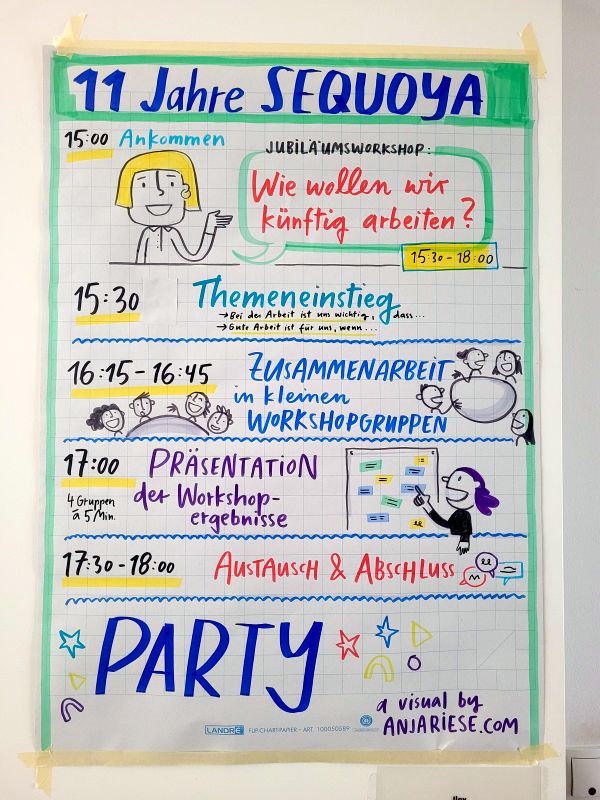 11 Jahre SEQUOYA
15:00 Ankommen
JUBILÄUMSWORKSHOP:
Wie wollen wir
künftig arbeiten?
15:30 - 18:00
15:30 Themeneinstieg
→ Bei der Arbeit ist uns wichtig, dass...
→ Gute Arbeit ist für uns, wenn...
16:15 - 16:45 ZUSAMMENARBEIT
in kleinen
WORKSHOPGRUPPEN
17:00 PRÄSENTATION
4 Gruppen
à 5 Min.
der Workshop-
ergebnisse
17:30 - 18:00 AUSTAUSCH & ABSCHLUSS
PARTY
a visual by
ANJARIESE.COM
LANDRÉ FLIP-CHARTPAPIER - ART. 100050589